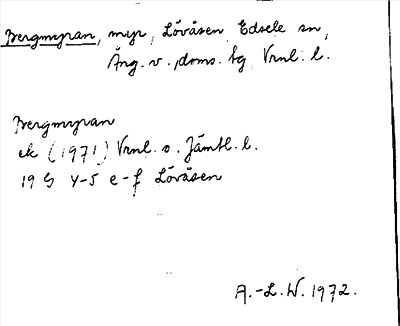 Bergmyran, myr, Lövåsen, Edsele sn,
Ång. v. doms. fg Vrnl. l.
Bergmyran
ek (1971) Vrnl. o. Jämtl. l.
19 G 4-5 e-f Lövåsen
A.-L. W. 1972.